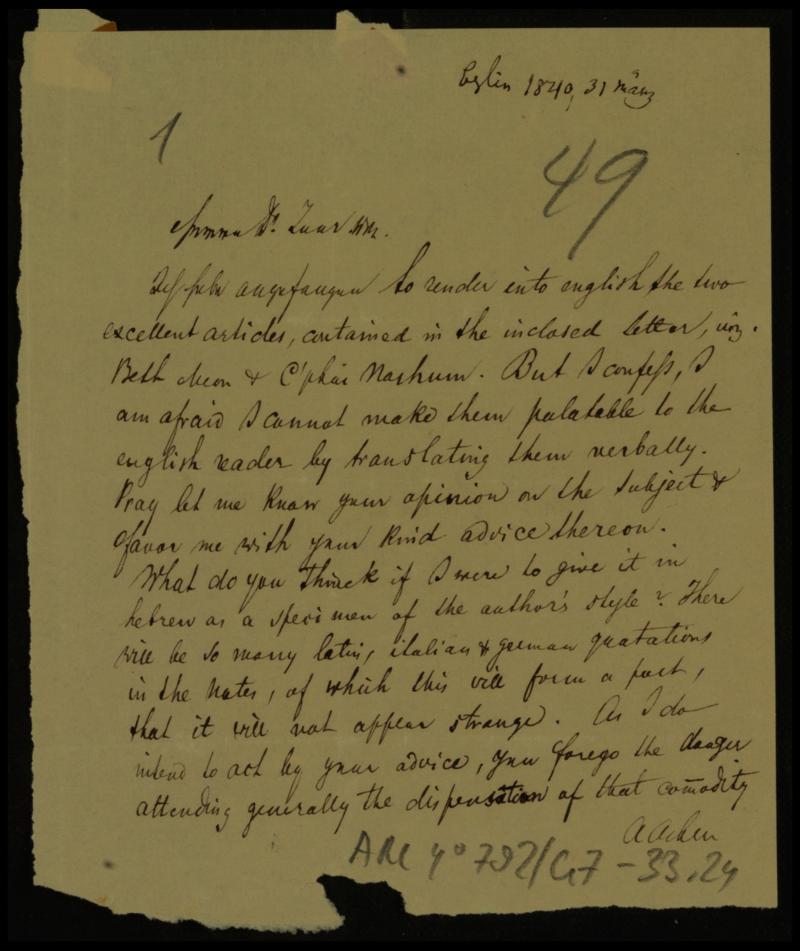 Berlin 1840, 31 März
1
49
Dr. Zunz
Ich habe angefangen to render into english the two
excellent articles, contained in the inclosed letter, viz.
Beth Meon & C'phar Nachum. But I confess, I
am afraid I cannot make them palatable to the
english reader by translating them verbally.
Pray let me know your opinion on the subject &
favor me with your kind advice thereon.
What do you think if I were to give it in
hebrew as a specimen of the author's style? There
will be so many latin, italian & german quotations
in the Notes, of which this will form a part,
that it will not appear strange. As I do
intend to act by your advice, you forego the danger
attending generally the dispensation of that comodity
A Asher
ARC 4° 792/G7 - 33.24